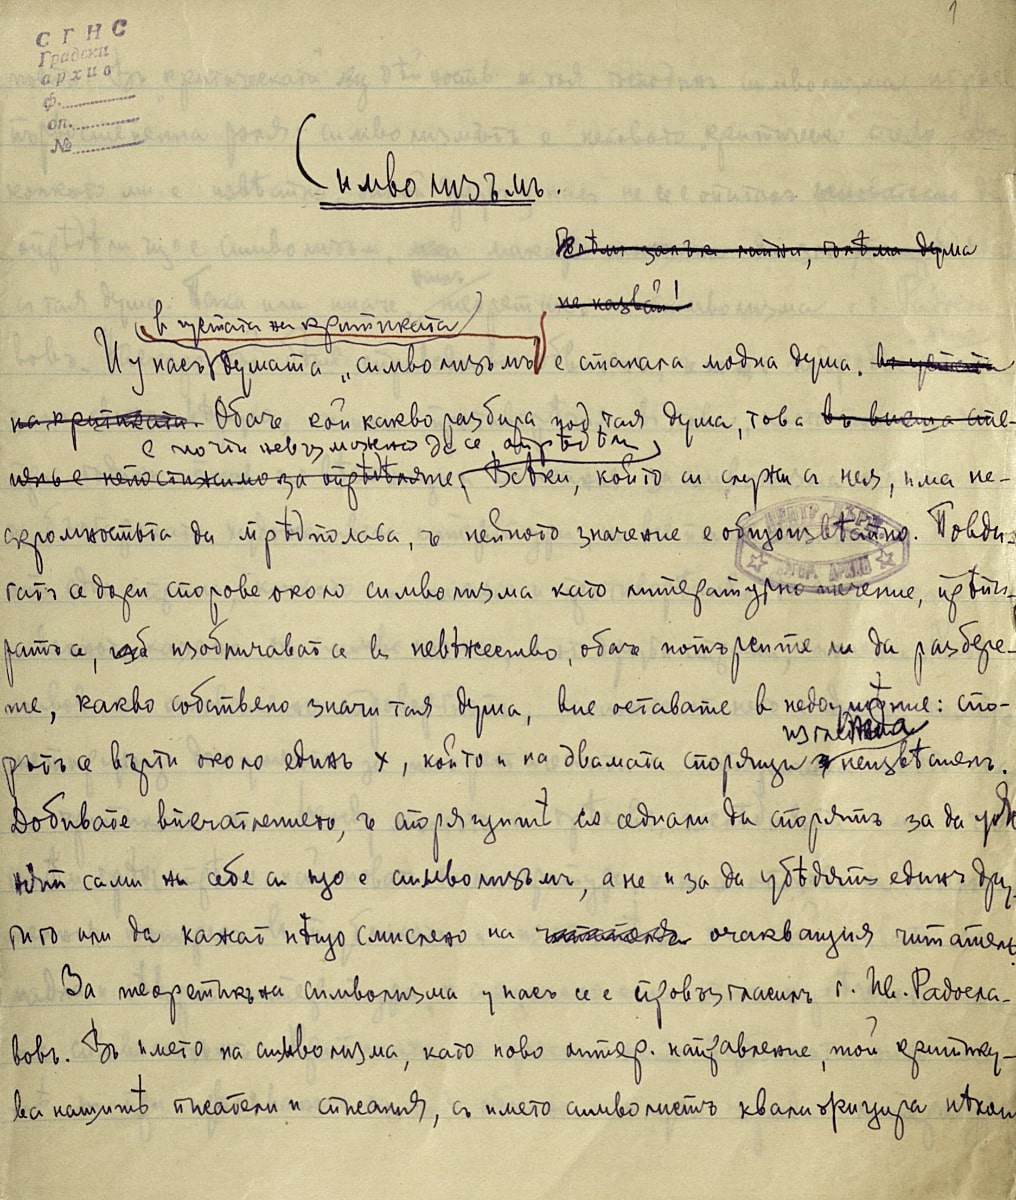 1
СГНС
Градски
архив
ф.
оп.
№
Символизъмъ.
голѣма дума
не казвай!
в устата на критиката
И у насъ думата „символизъмъ“ е станала модна дума. въ устата
на критиката. Обаче кой какво разбира под тая дума, това въ висша сте-
е почти невъзможно да се опрѣдѣли
пень е непостижимо за опрѣдѣляне. Всѣки, който си служи съ нея, има не-
скромностьта да прѣдполага, че нейното значение е общоизвѣстно. Повди-
гатъ се дори спорове около символизма като литературно течение, прѣпи-
ратъ се, изобличават се в невѣжество, обаче потърсите ли да разбере-
те, какво собствено значи тая дума, вие оставате в недоумѣние: спо-
изглежда
рътъ се върти около единъ х, който и на двамата спорящи неизвѣстенъ.
Добивате впечатлението, че спорящитѣ са седнали да спорятъ за да уяс-
нят сами на себе си що е символизъмъ, а не и за да убѣдятъ единъ дру-
гиго или да кажат нѣщо смислено на читателя очакващия читатель.
За теоретикъ на символизма у насъ се е провъзгласилъ г. Ив. Радосла-
вовъ. Въ името на символизма, като ново литер. направление, той критику-
ва нашитѣ писатели и списания, съ името символистъ квалифицира нѣкои